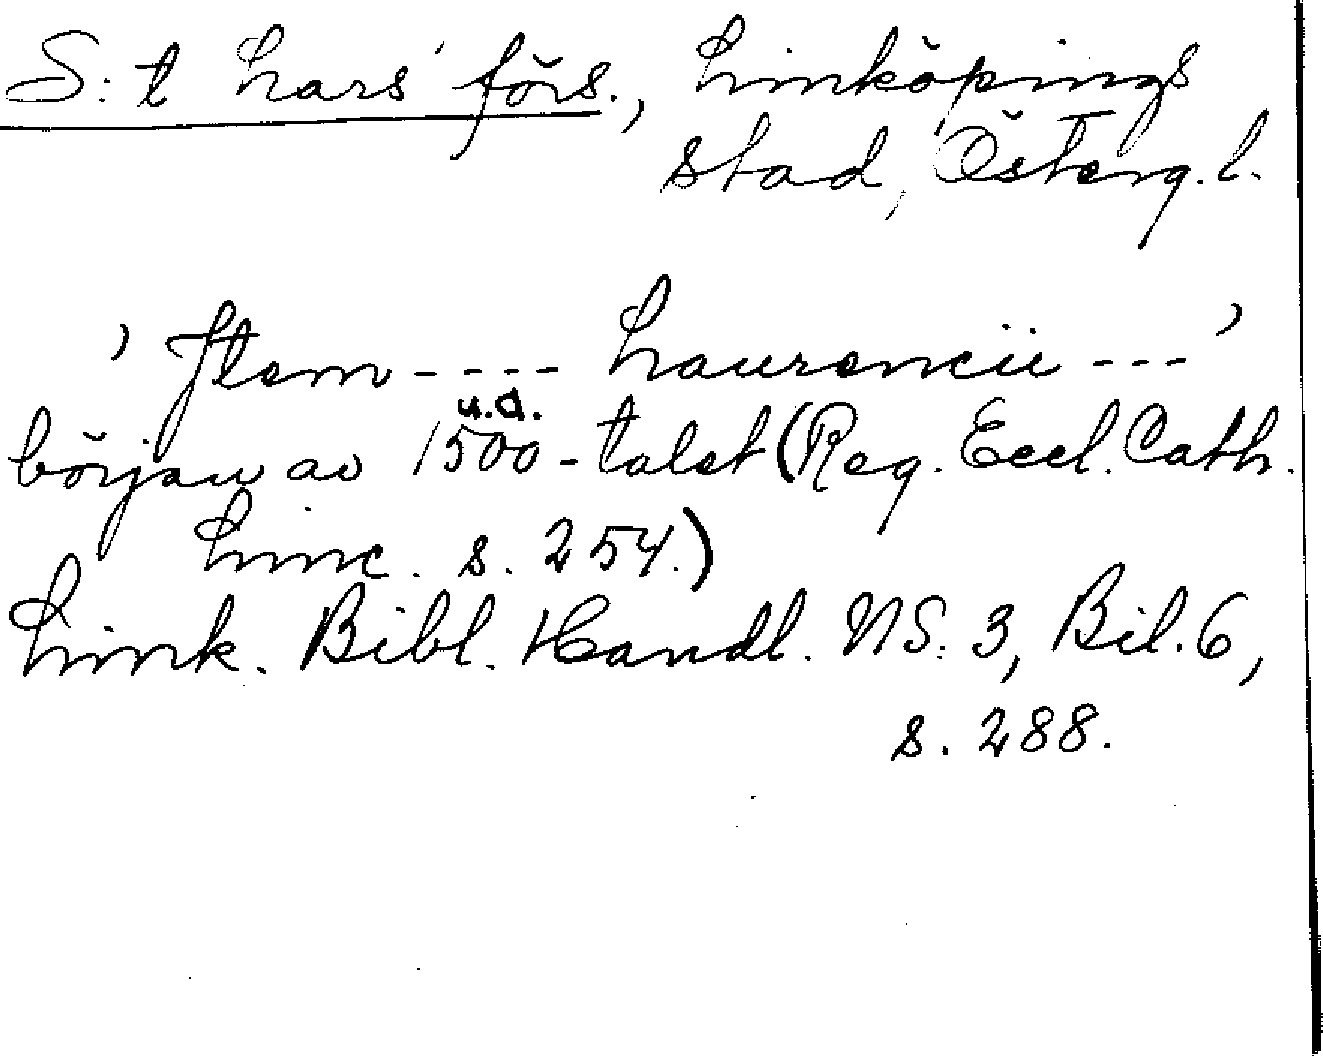 S:t Lars' förs., Linköpings
stad, Österg. l.
' Item ---- Laurencii --- '
u.a.
början av 1500-talet (Reg. Eccl. Cath.
Linc. s. 254.)
Link. Bibl. Handl. NS: 3, Bil. 6,
s. 288.